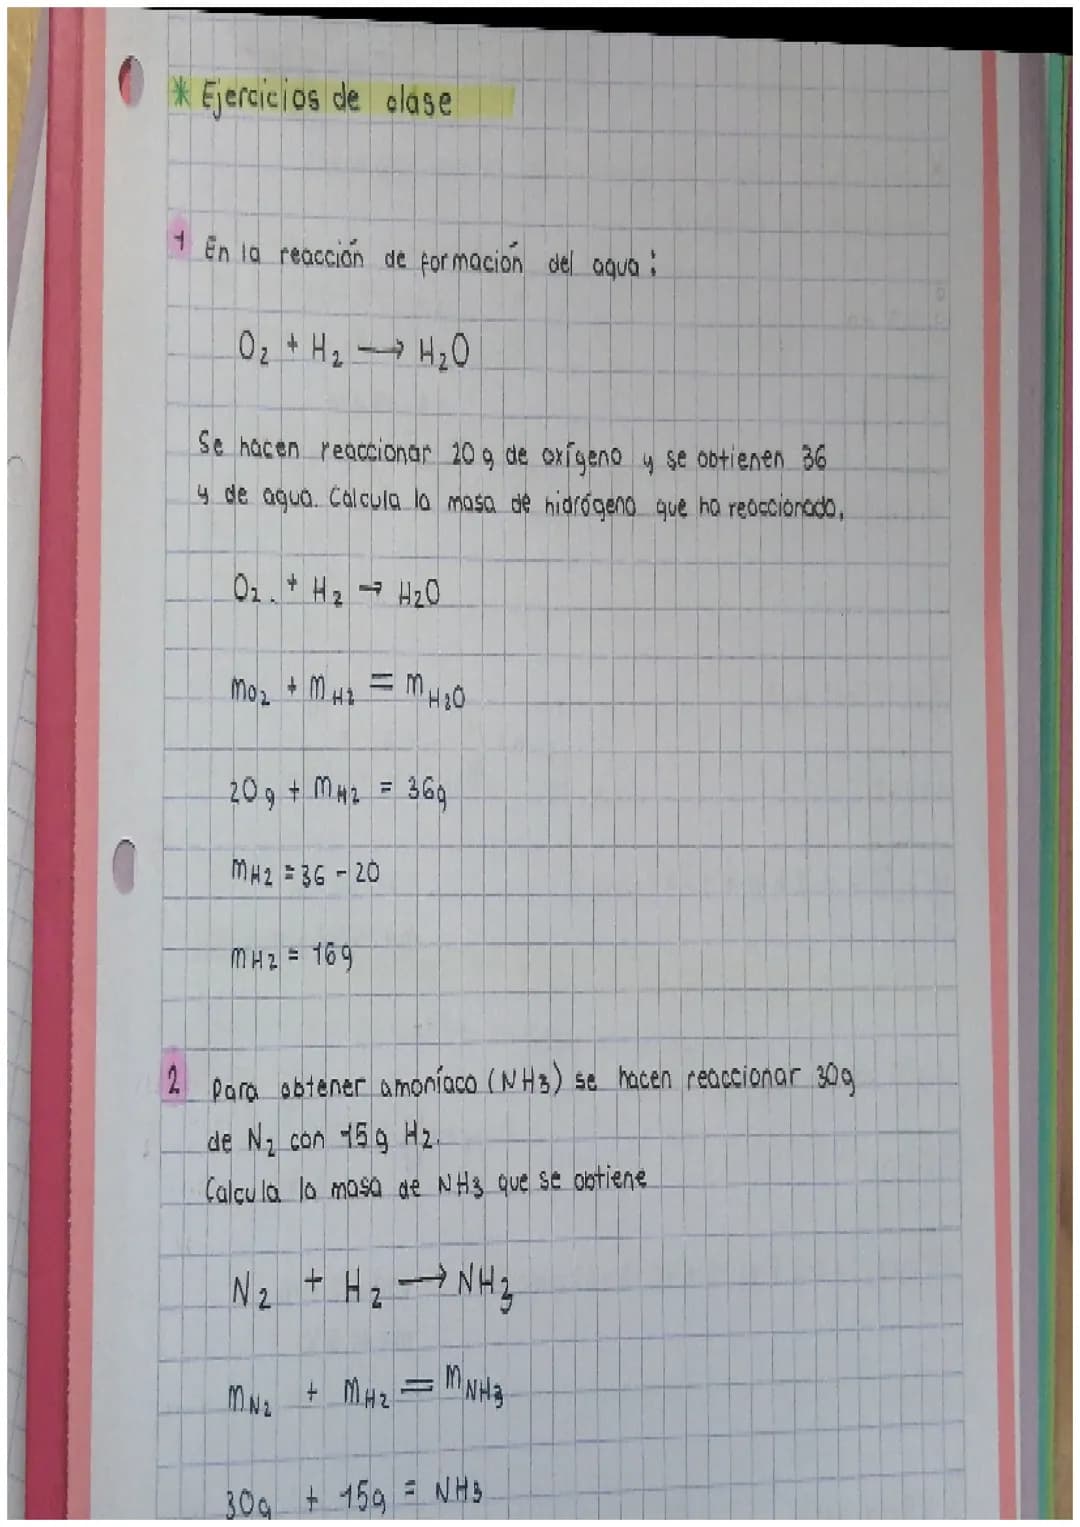 * Ejercicios de clase
1 En la reacción de formación del agua:
O₂ + H₂ → H₂O
Se hacen reaccionar 20 g de oxígeno y se obtienen 36
g de agua. Calcula la masa de hidrógeno que ha reaccionado.
O₂. + H₂ → H₂O
mO₂ + mH₂ = mH₂O
20g + mH₂ = 36g
mH₂ = 36 - 20
mH₂ = 16g
2 Para obtener amoníaco (NH₃) se hacen reaccionar 30g
de N₂ con 15g H₂.
Calcula la masa de NH₃ que se obtiene
N₂ + H₂ → NH₃
mN₂ + mH₂ = mNH₃
30g + 15g = NH₃